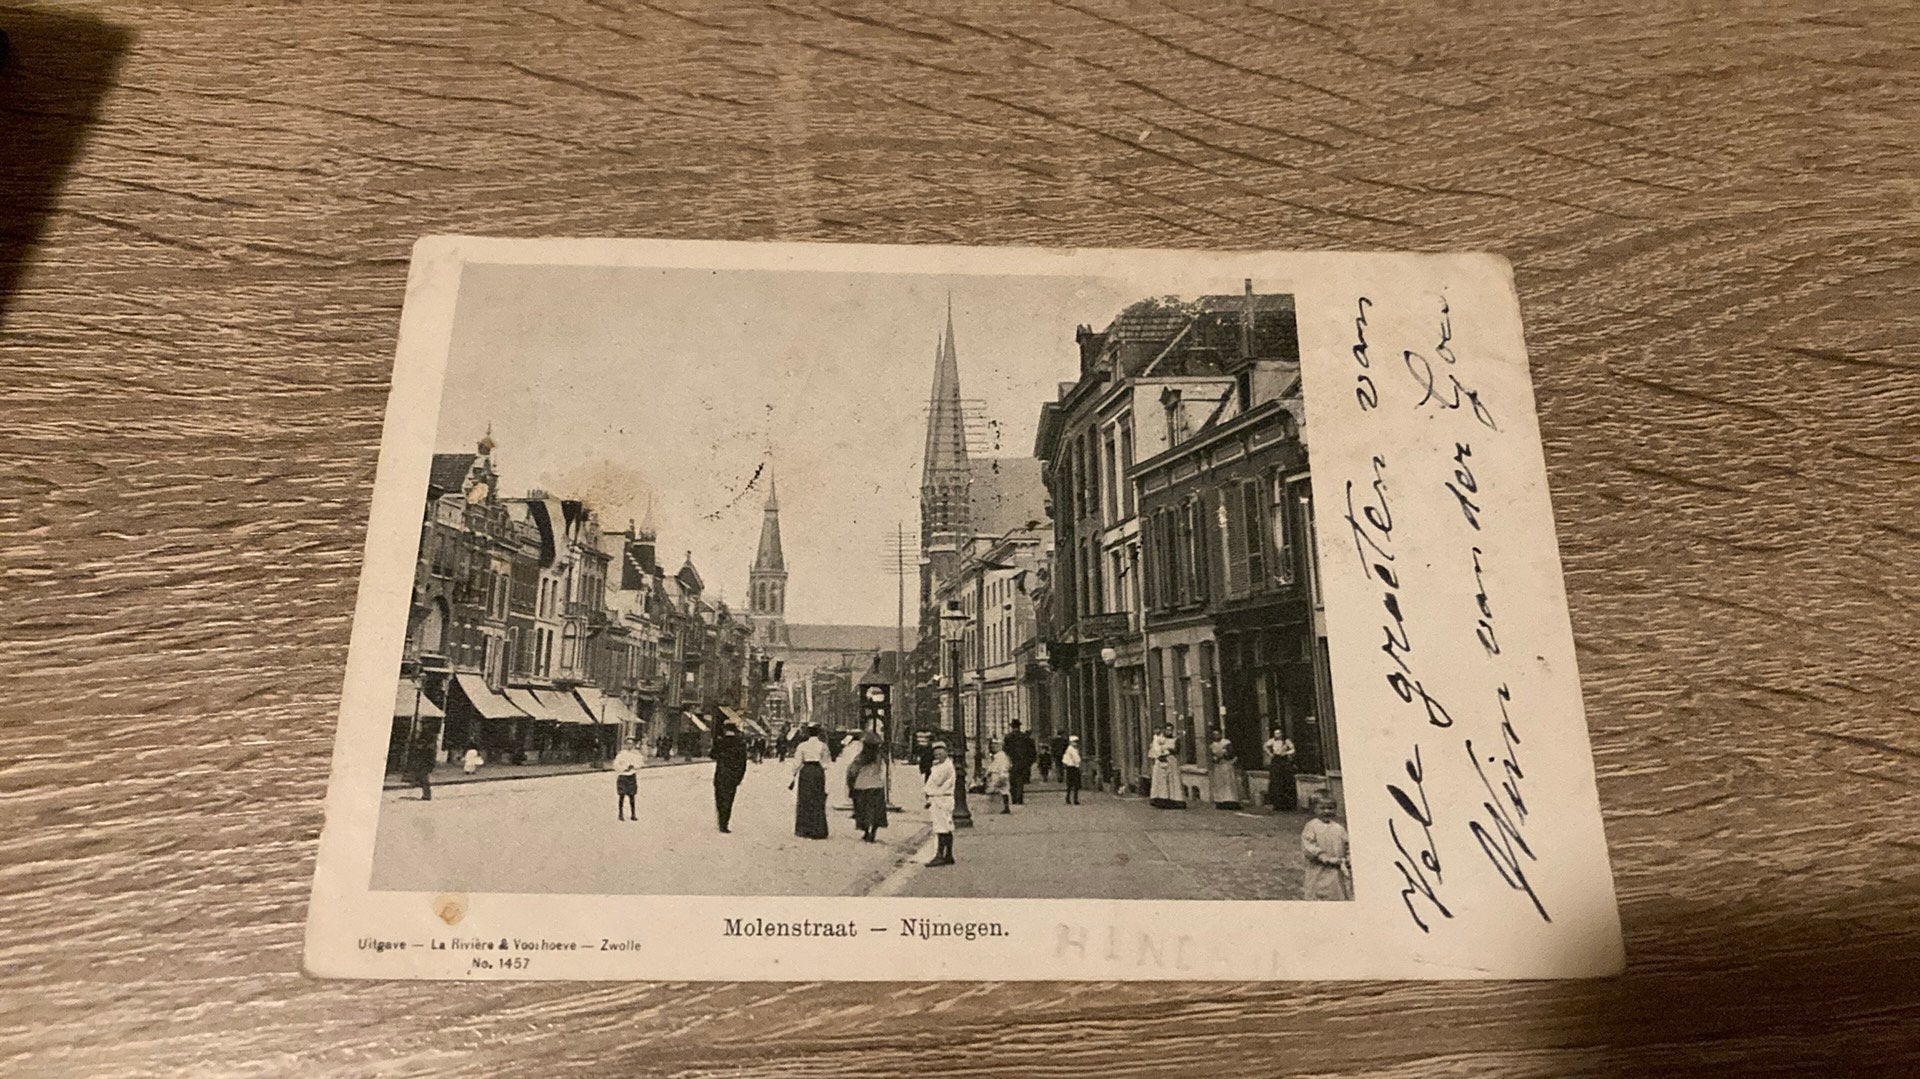 Molenstraat – Nijmegen.
Uitgave — La Rivière & Voorhoeve — Zwolle
No. 1457
Vele groeten van
Wim van der